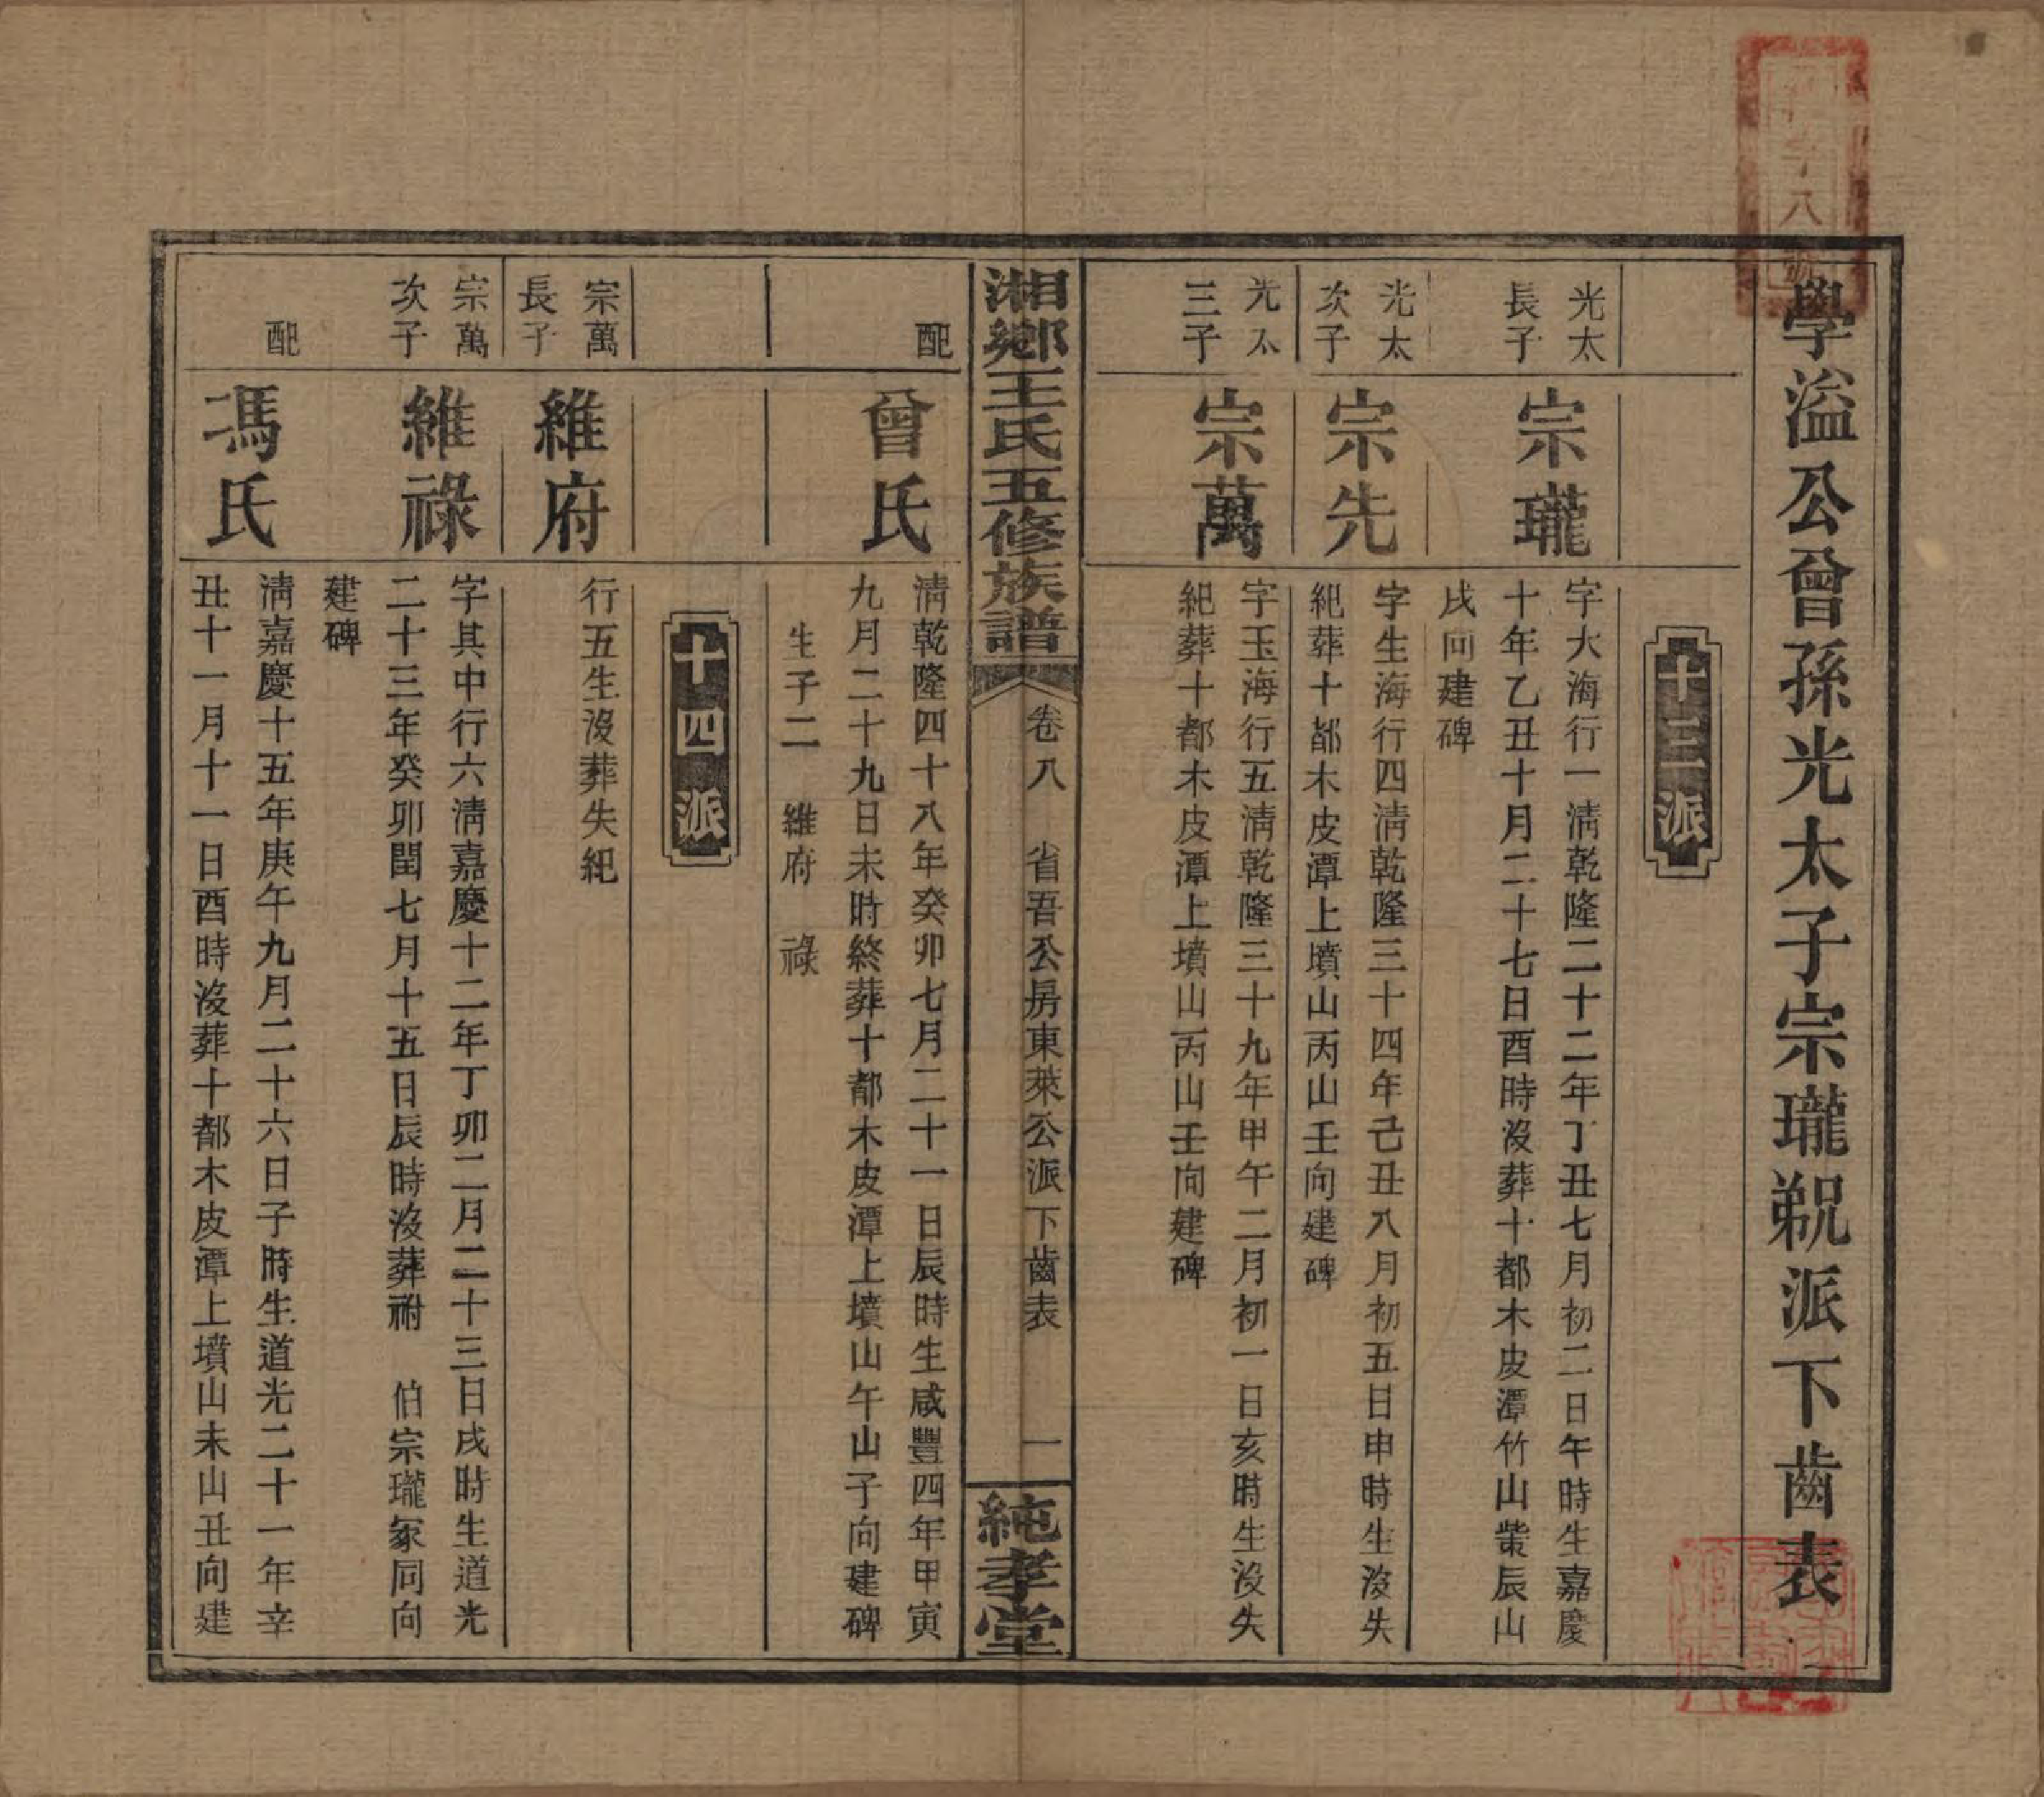 學溢公曾孫光太子宗瓏覣派下齒表
十三派
光太
長子
宗瓏
字大海行一淸乾隆二十二年丁丑七月初二日午時生嘉慶
十年乙丑十月二十七日酉時沒葬十都木皮潭竹山柴辰山
戌向建碑
光太
次子
宗先
字生海行四淸乾隆三十四年己丑八月初五日申時生沒失
紀葬十都木皮潭上墳山丙山壬向建碑
光太
三子
宗萬
字玉海行五淸乾隆三十九年甲午二月初一日亥時生沒失
紀葬十都木皮潭上墳山丙山壬向建碑
湘鄉王氏五修族譜
卷八 省吾公房東萊公派下齒表 一
純孝堂
配
曾氏
淸乾隆四十八年癸卯七月二十一日辰時生咸豐四年甲寅
九月二十九日未時終葬十都木皮潭上墳山午山子向建碑
生子二 維府 祿
十四派
宗萬
長子
維府
行五生沒葬失紀
宗萬
次子
維祿
字其中行六淸嘉慶十二年丁卯二月二十三日戌時生道光
二十三年癸卯閏七月十五日辰時沒葬祔 伯宗瓏冢同向
建碑
配
馮氏
淸嘉慶十五年庚午九月二十六日子時生道光二十一年辛
丑十一月十一日酉時沒葬十都木皮潭上墳山未山丑向建